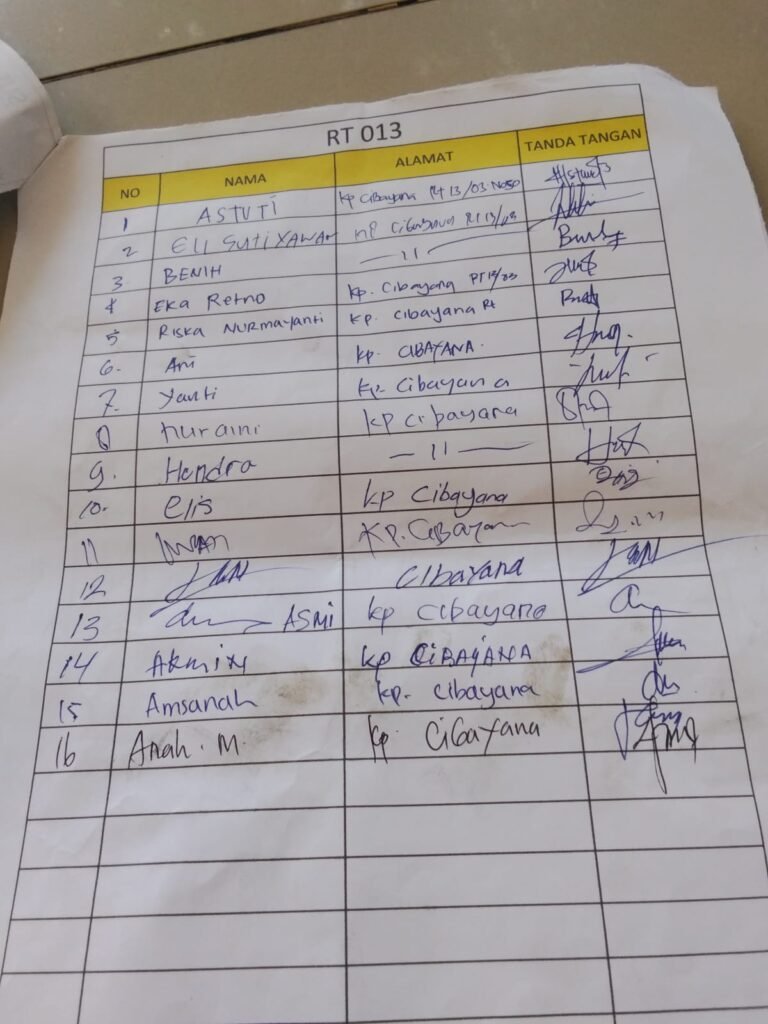 RT 013
NO NAMA ALAMAT TANDA TANGAN
1 ASTUTI kp Cibayana Rt 13/03
2 Eli Sutiyawan kp Cibayana Rt 13/03
3. BENIH — 11 —
4 Eka Retno kp. Cibayana RT 13/03
5 Riska NURMayanti kp. cibayana Rt
6. Ani kp. CIBAYANA.
7. Yanti kp. Cibayana
8 nuraini kp cibayana
9. Hendra — 11 —
10. elis kp Cibayana
11 Kp. Cibayana
12 Cibayana
13 ASMI kp cibayana
14 kp CiBAYANA
15 Amsanah kp. cibayana
16 Anah. M. kp. Cibayana